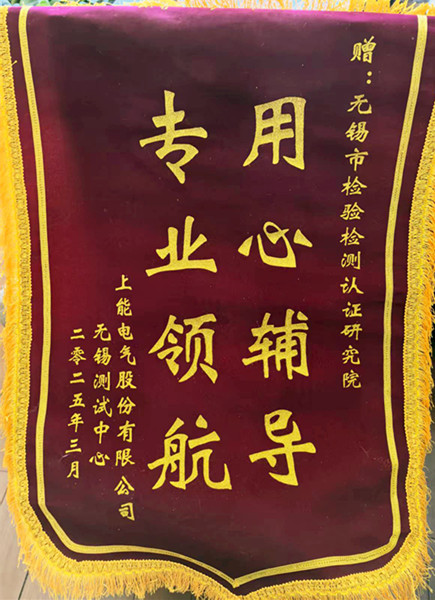 赠：无锡市检验检测认证研究院
用心辅导
专业领航
上能电气股份有限公司
无锡测试中心
二零二五年三月